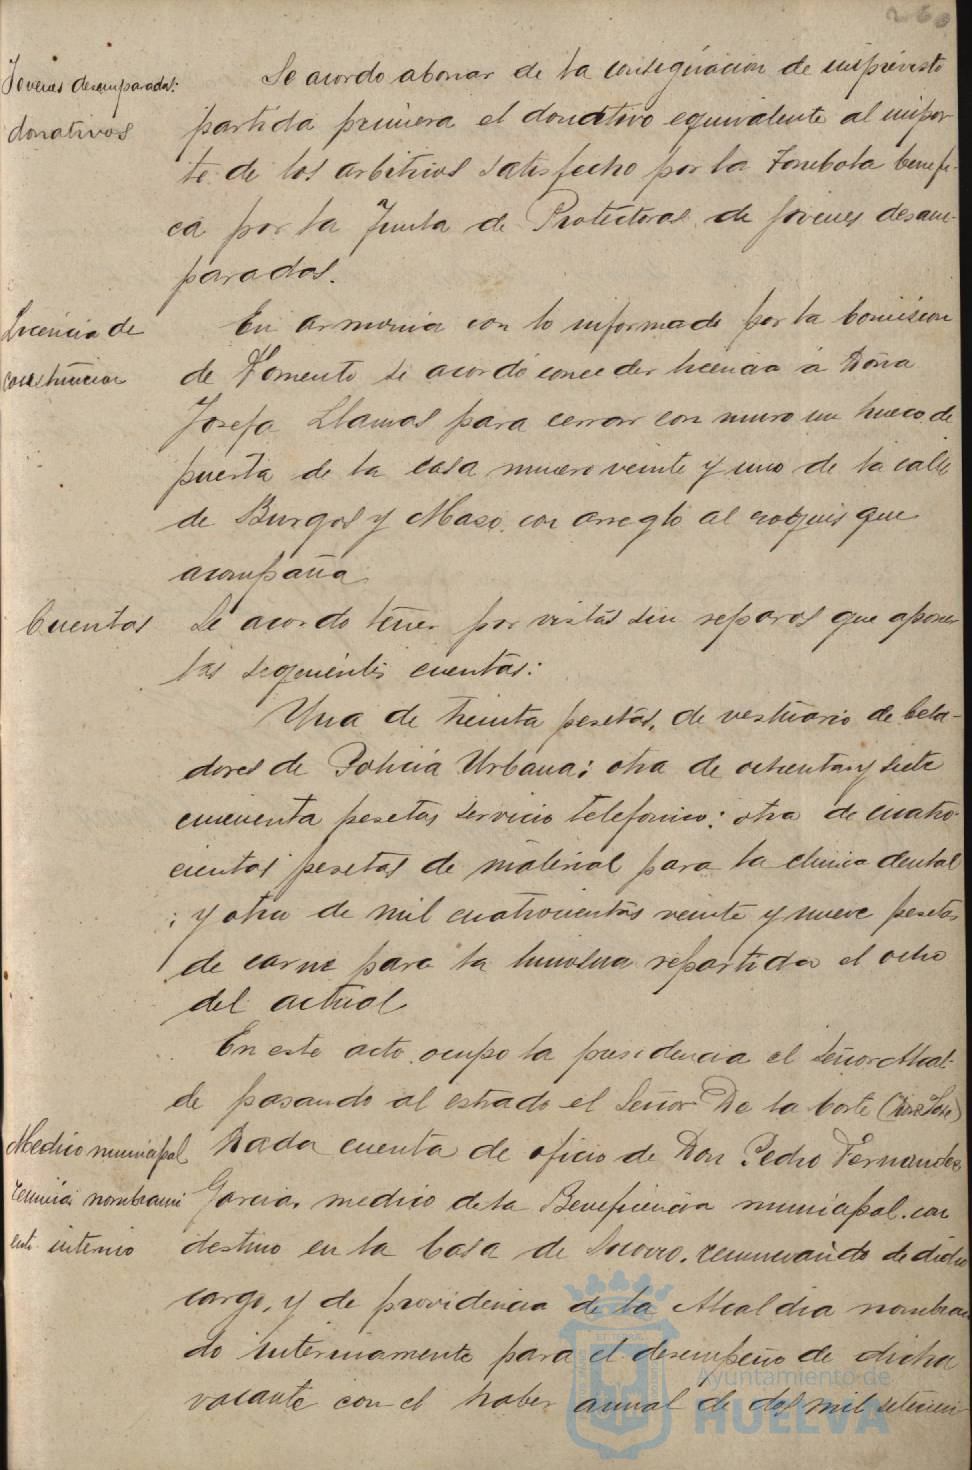 Jovenes desamparados:
donativos
Se acordo abonar de la consignacion de imprevisto
partida primera el donativo equivalente al impor-
te de los arbitrios satisfecho por la Tombola benefi-
ca por la Junta de Protectoras de jovenes desam-
parados.
Licencia de
construccion
En armonia con lo informado por la Comision
de Fomento se acordó conceder licencia á Doña
Josefa Llamas para cerrar con muro un hueco de
puerta de la casa numero veinte y uno de la calle
de Burgos y Mazo con arreglo al croquis que
acompaña
Cuentas
Se acordo tener por vistas sin reparos que aponer
las siguientes cuentas:
Una de treinta pesetas, de vestuario de Cela-
dores de Policia Urbana; otra de ochenta y siete
cincuenta pesetas servicio telefonico; otra de cuatro-
cientas pesetas de material para la clinica dental
; y otra de mil cuatrocientas veinte y nueve pesetas
de carne para la limosna repartida el ocho
del actual
En este acto ocupo la presidencia el Señor Alcal-
de pasando al estrado el Señor De la Corte (Don José)
Medico municipal
renuncia nombrami
ento interino
Dada cuenta de oficio de Don Pedro Fernandez
Garcia, medico de la Beneficencia municipal con
destino en la Casa de Socorro, renunciando de dicho
cargo, y de providencia de la Alcaldia nombran
do interinamente para el desempeño de dicha
vacante con el haber anual de dos mil setecien-
Ayuntamiento de
HUELVA